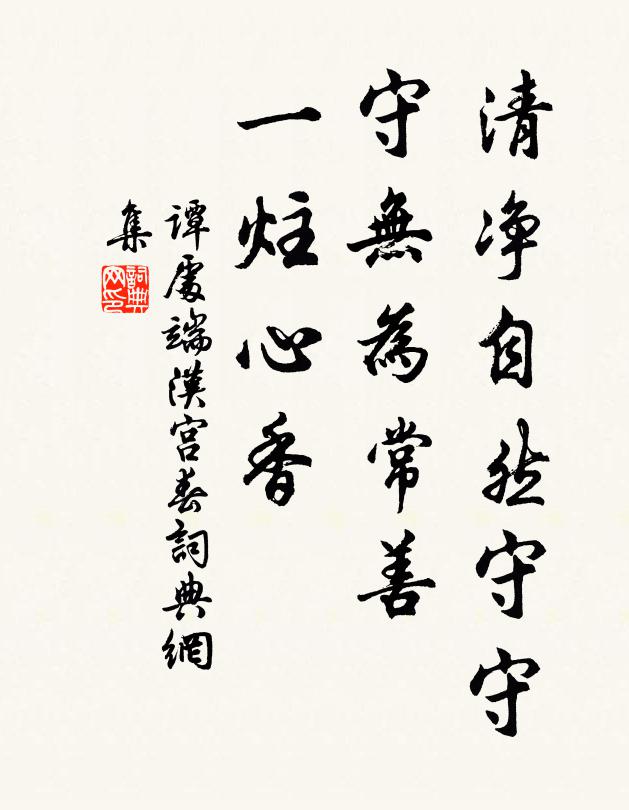 清淨自然守守
守無為常善
一炷心香
譚處端漢宮春詞典網
集
詞典
网印